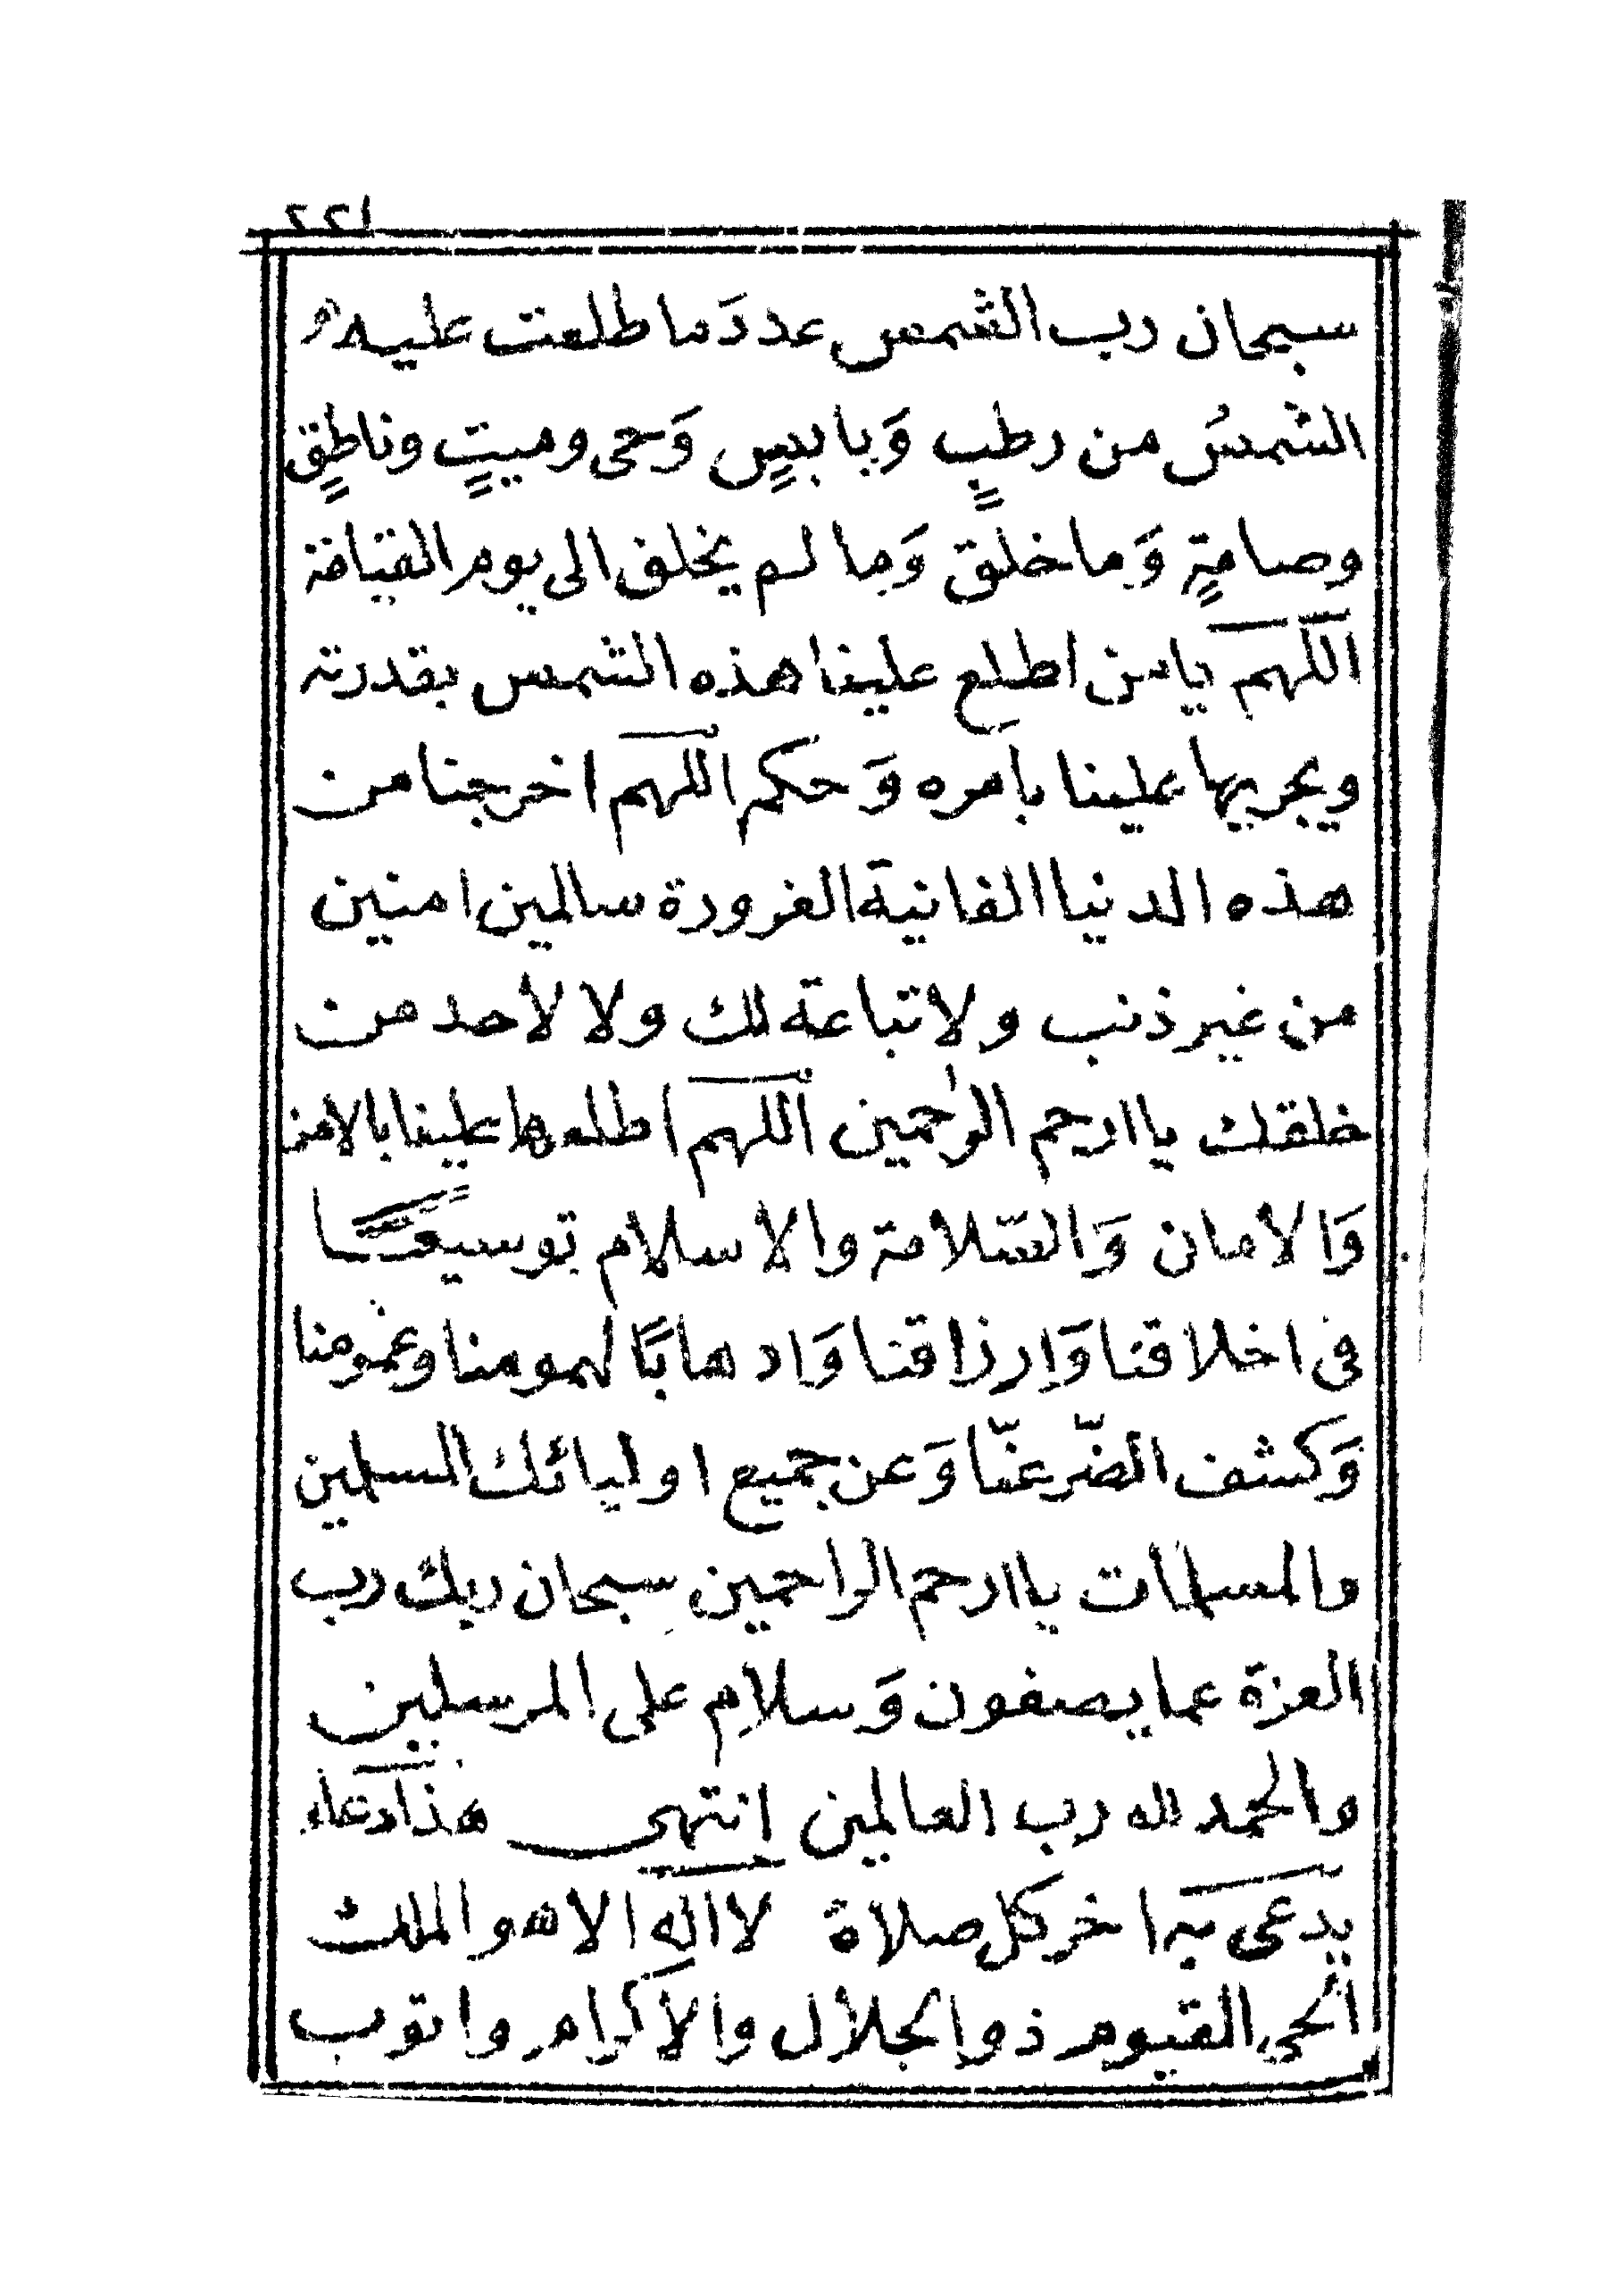 ٢٢١
سبحان رب الشمس عدد دَما طلعت عليه
الشمسُ من رطبٍ وَيا بسٍ وَحى وميتٍ وناطقٍ
وصامةٍ وَما خلق وَما لم يخلق الى يوم القيامة
اللهم يا من اطلع علينا هذه الشمس بقدرته
ويجريها علينا بامره وَ حكم اللهم اخرجنا من
هذه الدنيا الفانية الغرورة سالمين امنين
من غير ذنب ولا تباعة لك ولا لأحد من
خلقك يا ارحم الرٰحمين اللهم اطلعها علينا بالامن
وَالأمان وَالسّلامة والاسلام توسيعًا
فى اخلاقنا وَارزاقنا وَاد هابًا لهمومنا وغمومنا
وَكشف الضّر عنّا وَعن جميع اوليائك المسلمين
والمسلمات يا ارحم الراحمين سبحان ربك رب
العزة عما يصفون وَسلام على المرسلين
والحمد لله رب العالمين انتهى هذا دعاء
يدعى به اخر كل صلاة لا اله الا هو الملك
الحي القيوم ذو الجلال والاكرام واتوب